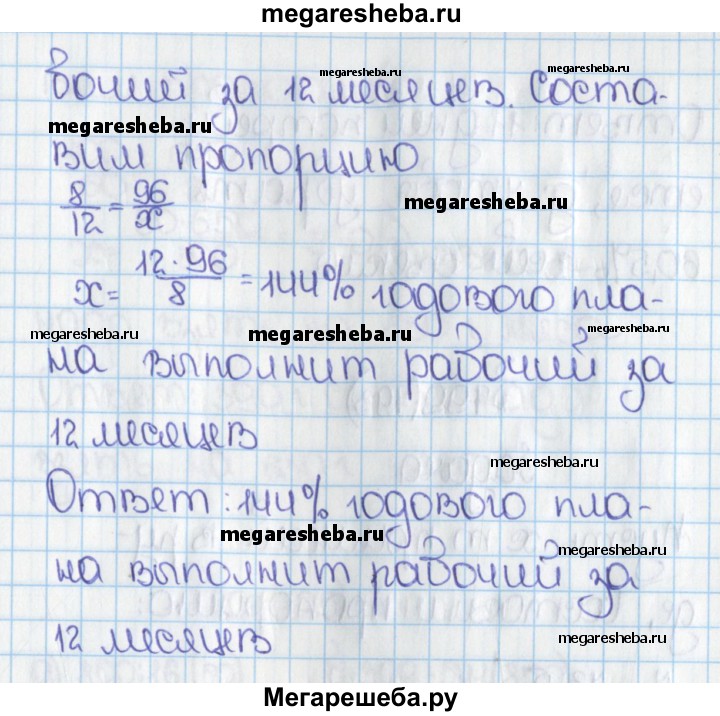 megaresheba.ru
бочий за 12 месяцев. Соста-
megaresheba.ru
megaresheba.ru
megaresheba.ru
вим пропорцию
8/12 = 96/x
megaresheba.ru
x = 12·96/8 = 144% годового пла-
megaresheba.ru
megaresheba.ru
megaresheba.ru
на выполнит рабочий за
12 месяцев
megaresheba.ru
Ответ: 144% годового пла-
megaresheba.ru
megaresheba.ru
на выполнит рабочий за
12 месяцев
megaresheba.ru
Мегарешеба.ру